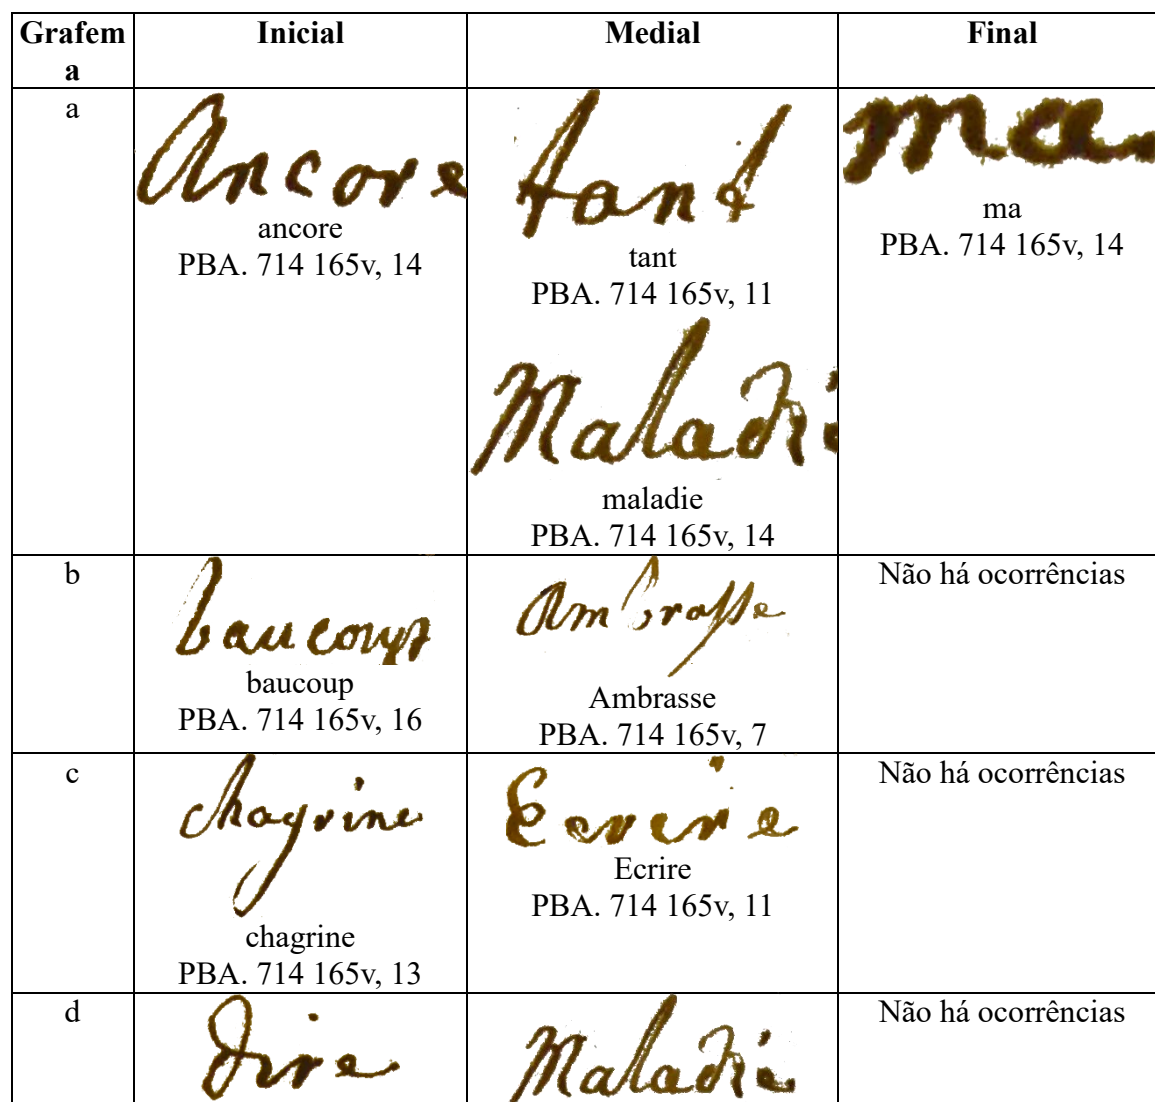 Grafem
a
Inicial
Medial
Final
a
Ancore
ancore
PBA. 714 165v, 14
tant
tant
PBA. 714 165v, 11
Maladi
maladie
PBA. 714 165v, 14
ma
ma
PBA. 714 165v, 14
b
baucoup
baucoup
PBA. 714 165v, 16
Ambrasse
Ambrasse
PBA. 714 165v, 7
Não há ocorrências
c
chagrine
chagrine
PBA. 714 165v, 13
Ecrire
Ecrire
PBA. 714 165v, 11
Não há ocorrências
d
dire
Maladie
Não há ocorrências